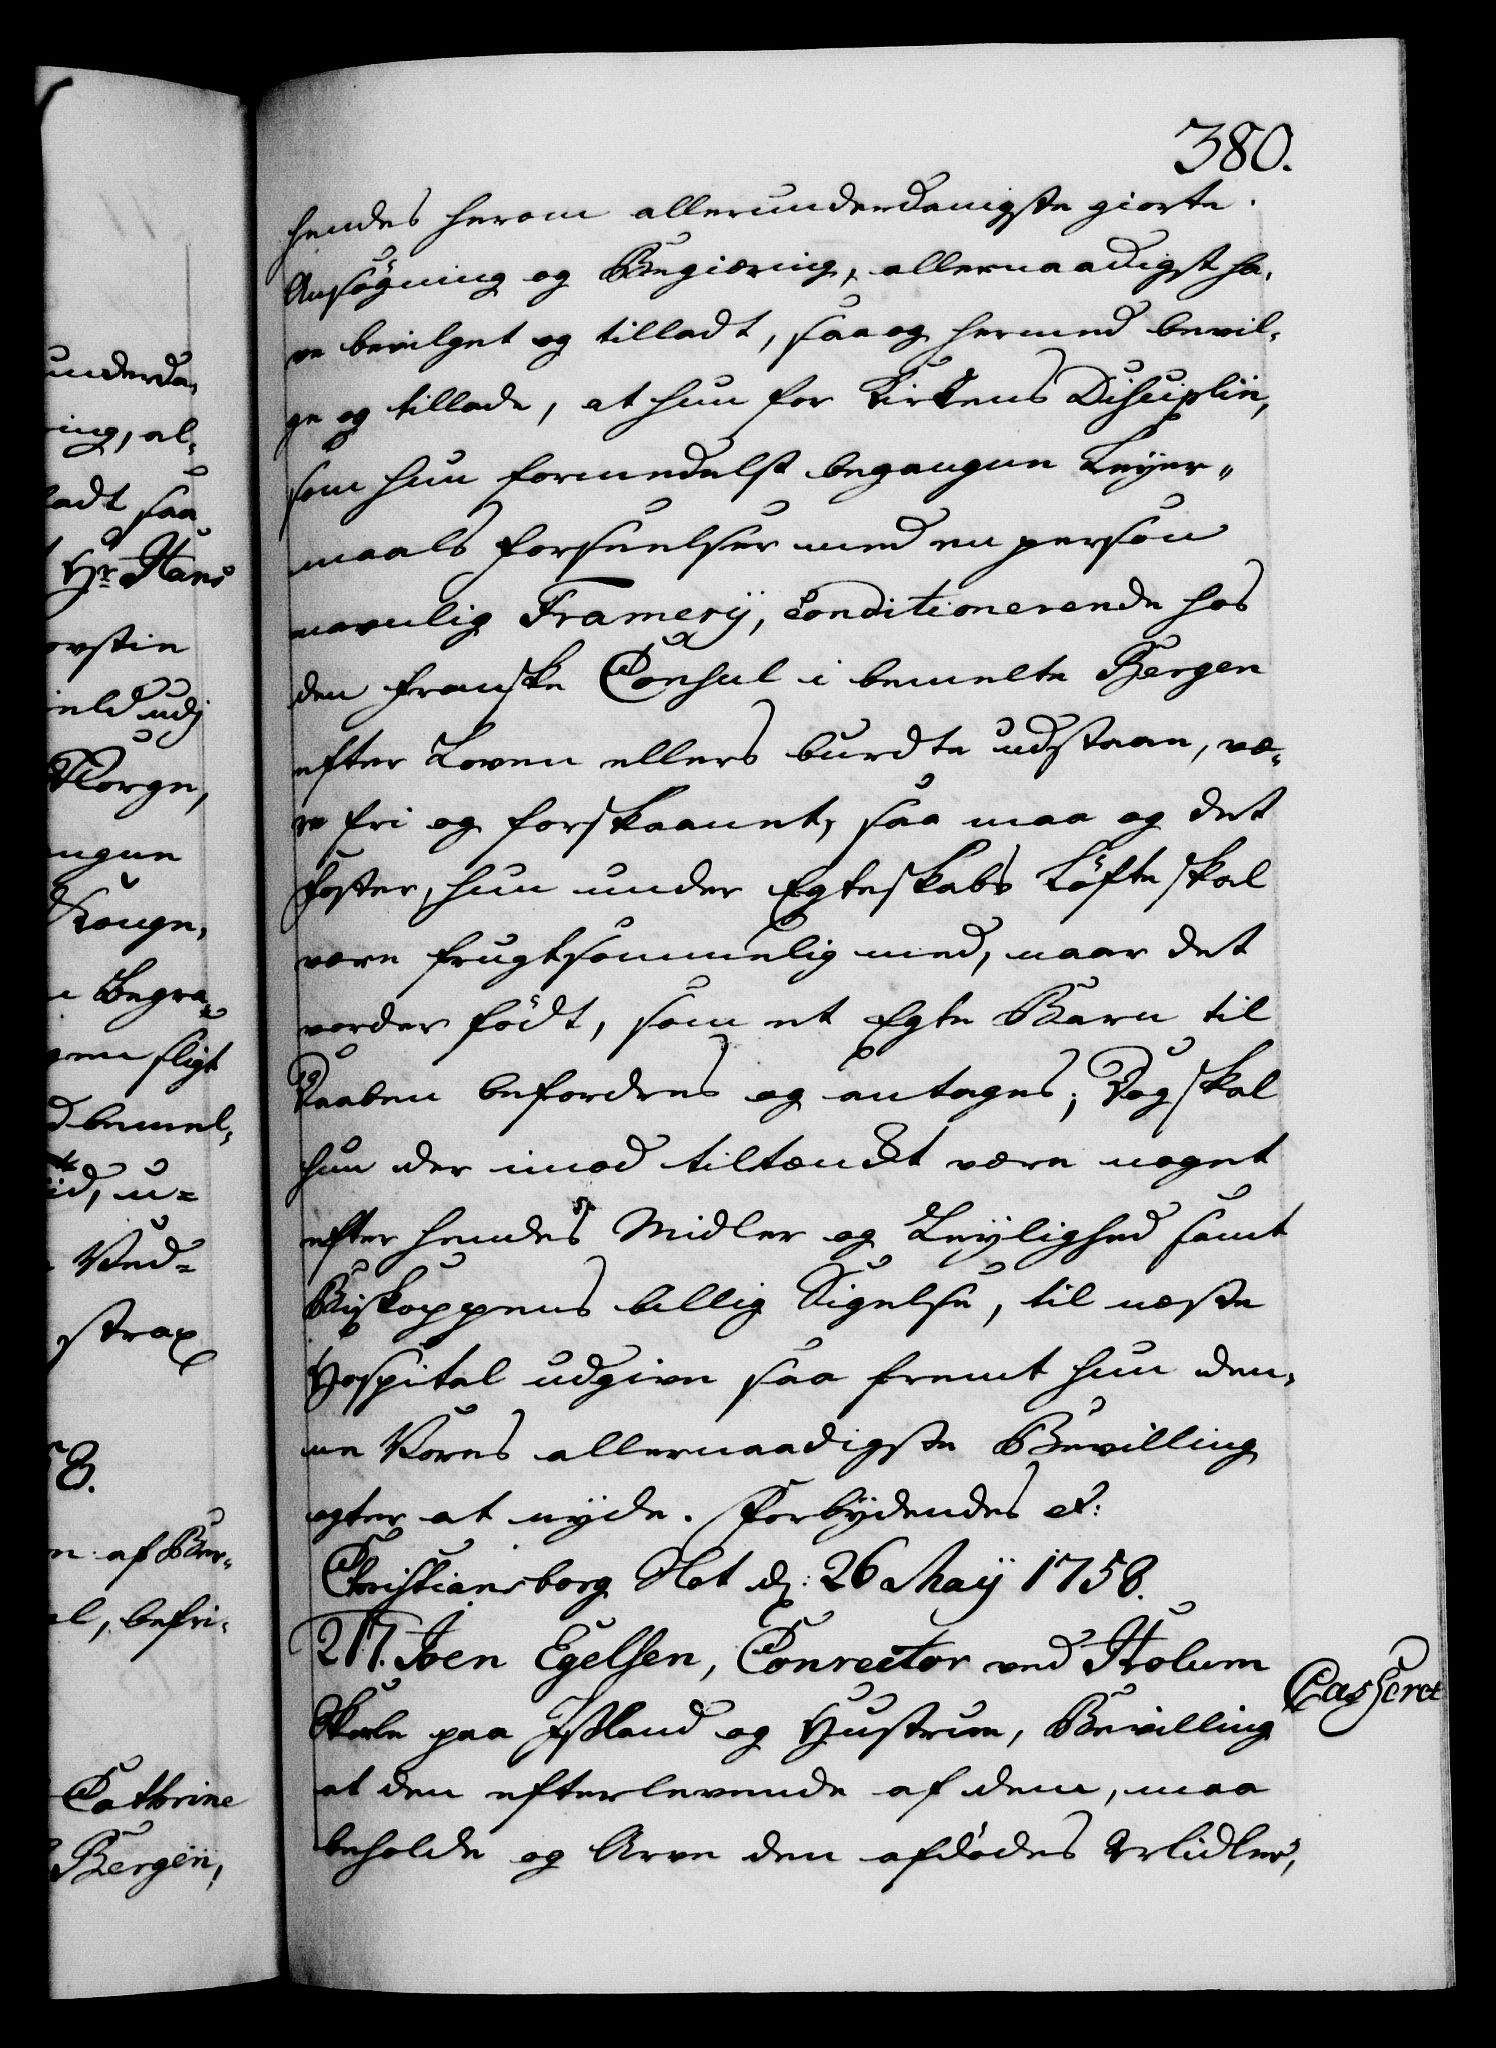 380.
hendes herom allerunderdanigste giorte
Ansøgning og Begiering, allernaadigst ha,
ve bevilget og tilladt, saa og hermed bevil,
ge og tillade, at hun for Kirkens Disciplin,
som hun formedelst begangne Leyer,,
maals forseelser med en person
navnlig Framerÿ, Conditionerende hos
den franske Consul i bemelte Bergen
efter Loven ellers burdte udstaae, væ,
re fri og forskaanet, saa maa og det
Foster, hun under Egteskabs Løfte skal
være frugtsommelig med, naar det
vorder født, som et Egte Barn til
Daaben befordres og antages; Dog skal
hun der imod tiltænckt være noget
efter hendes Midler og Leylighed samt
Biskoppens billig Sigelse, til næste
Hospital udgive saa fremt hun den,
ne Vores allernaadigste Bevilling
agter at nyde. Forbydendes et:
Christiansborg Slot d: 26 Maÿ 1758.
217. Joen Egelsen, Conrector ved Holum
Skole paa Island og Hustrue, Bevilling
Casseret
at den efterlevende af dem, maa
beholde og Arve den afdødes Midler,
underda,
ing, al,
ladt saa
Hr Hans
Norge,
Begra,
gen sligt
bemel,
Ved=
strax
8.
af Ber,
el, befri,
Cathrine
Bergen,